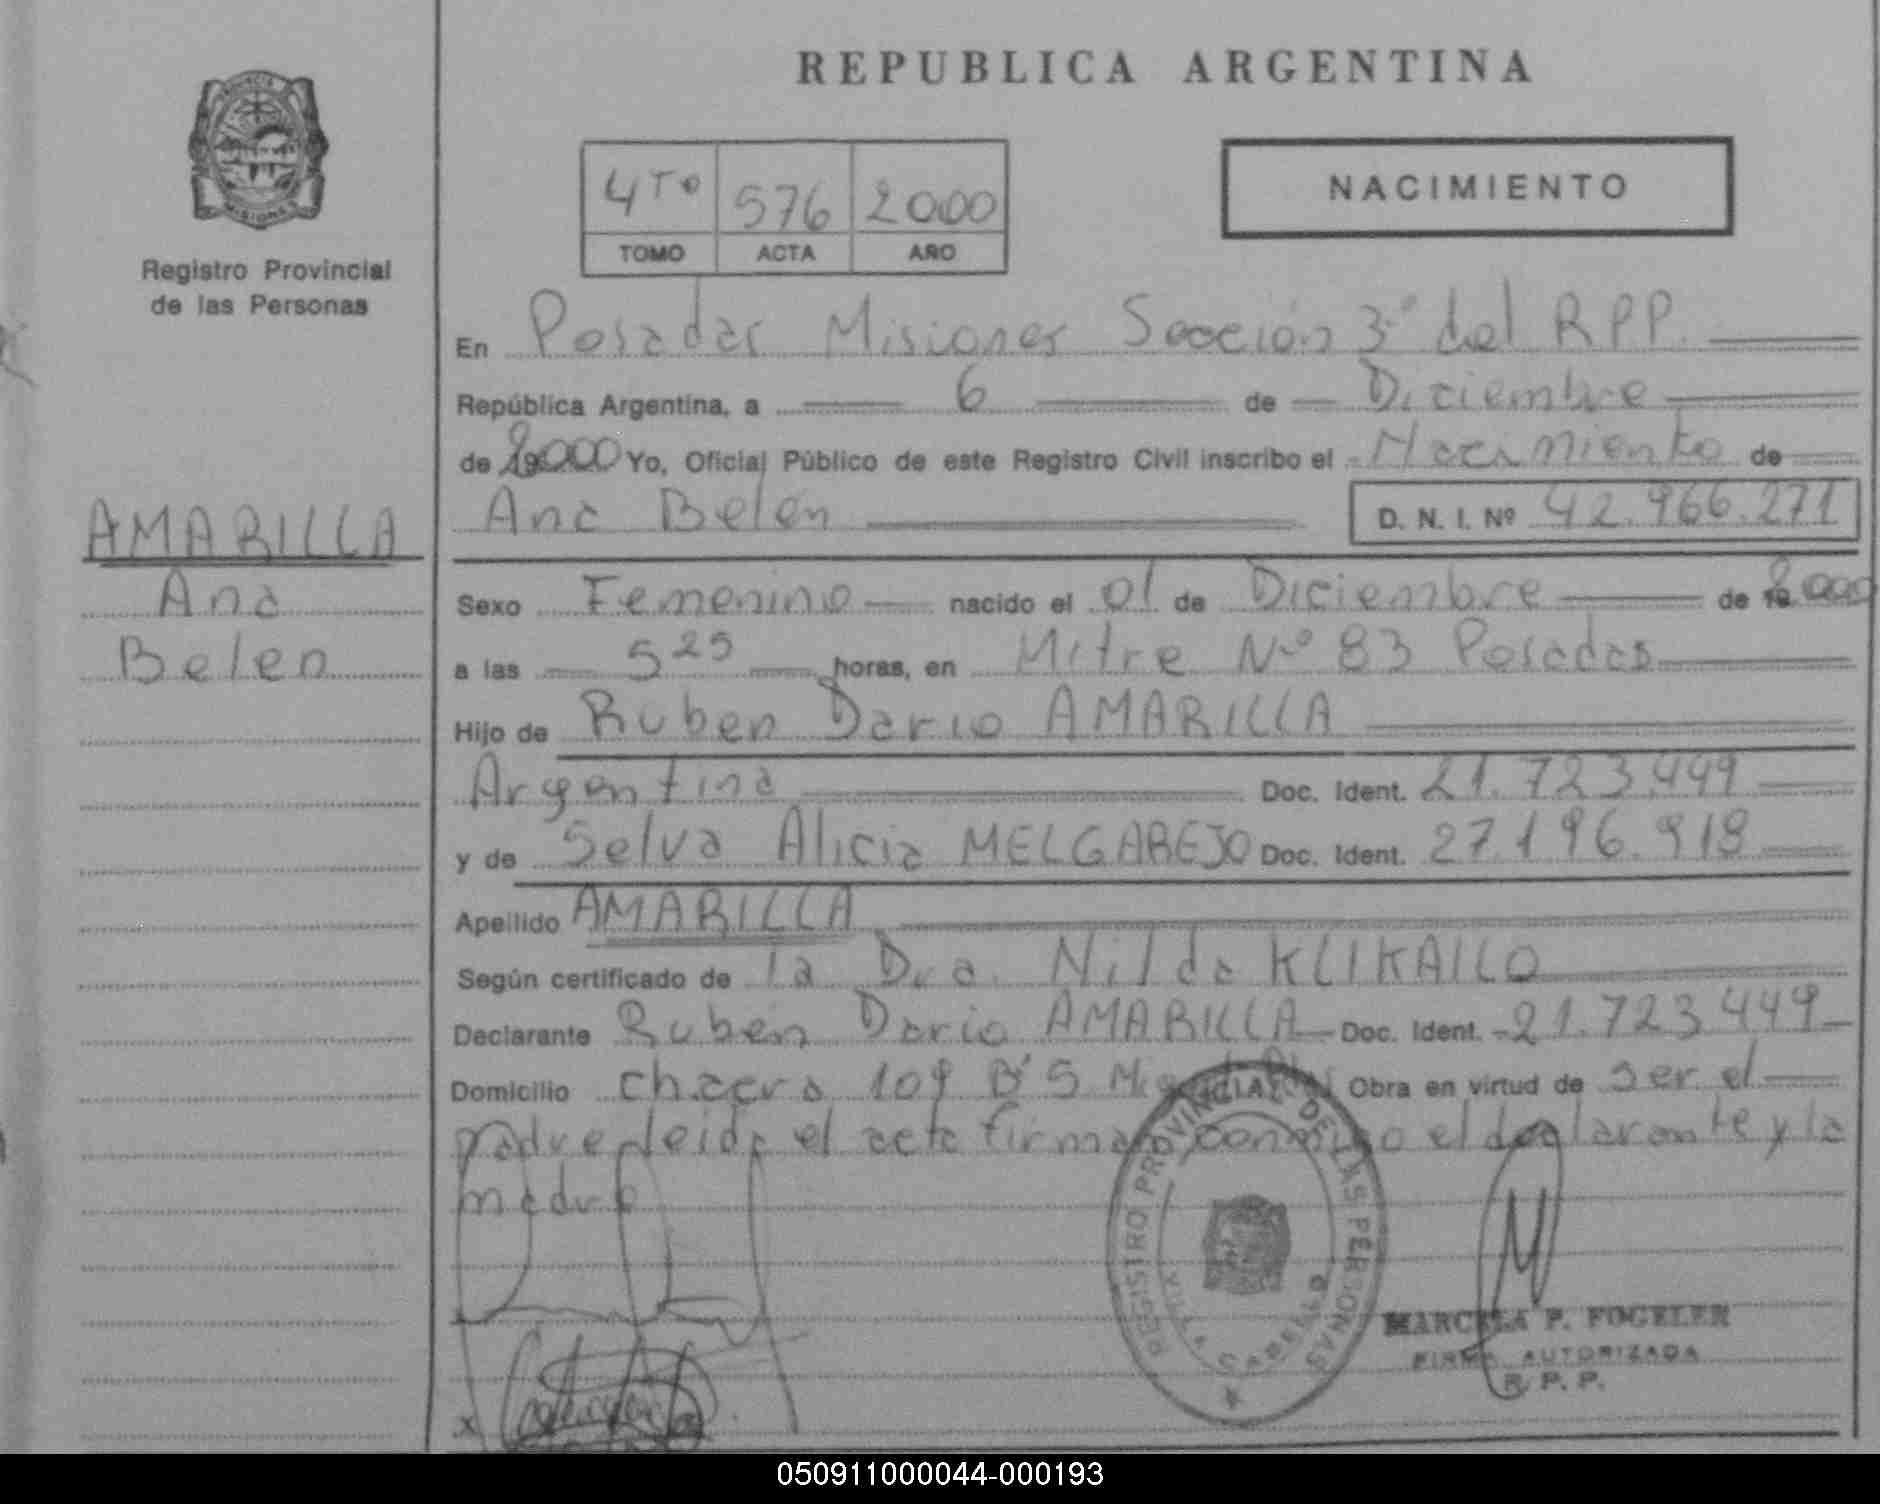 REPUBLICA ARGENTINA
PROVINCIA
MISIONES
Registro Provincial
de las Personas
4to 576 2000
TOMO ACTA AÑO
NACIMIENTO
En Posadas Misiones Sección 3º del RPP.
República Argentina, a 6 de Diciembre
de 2000 Yo, Oficial Público de este Registro Civil inscribo el Nacimiento de
Ana Belén D. N. I. Nº 42.966.271
AMARILLA
Ana
Belen
Sexo Femenino nacido el 01 de Diciembre de 2000
a las 5 25 horas, en Mitre Nº 83 Posadas
Hijo de Ruben Dario AMARILLA
Argentina Doc. Ident. 21.723.449
y de Selva Alicia MELGAREJO Doc. Ident. 27.196.918
Apellido AMARILLA
Según certificado de la Dra. Nilda KLIKAILO
Declarante Rubén Dario AMARILLA Doc. Ident. 21.723.449
Domicilio chacra 109 Bº S Mig Obra en virtud de ser el
padre leida el acta firman conmigo el declarante y la
madre
REGISTRO PROVINCIAL DE LAS PERSONAS
VILLA CABELLO
MARCELA P. FOGELER
FIRMA AUTORIZADA
R. P. P.
050911000044-000193